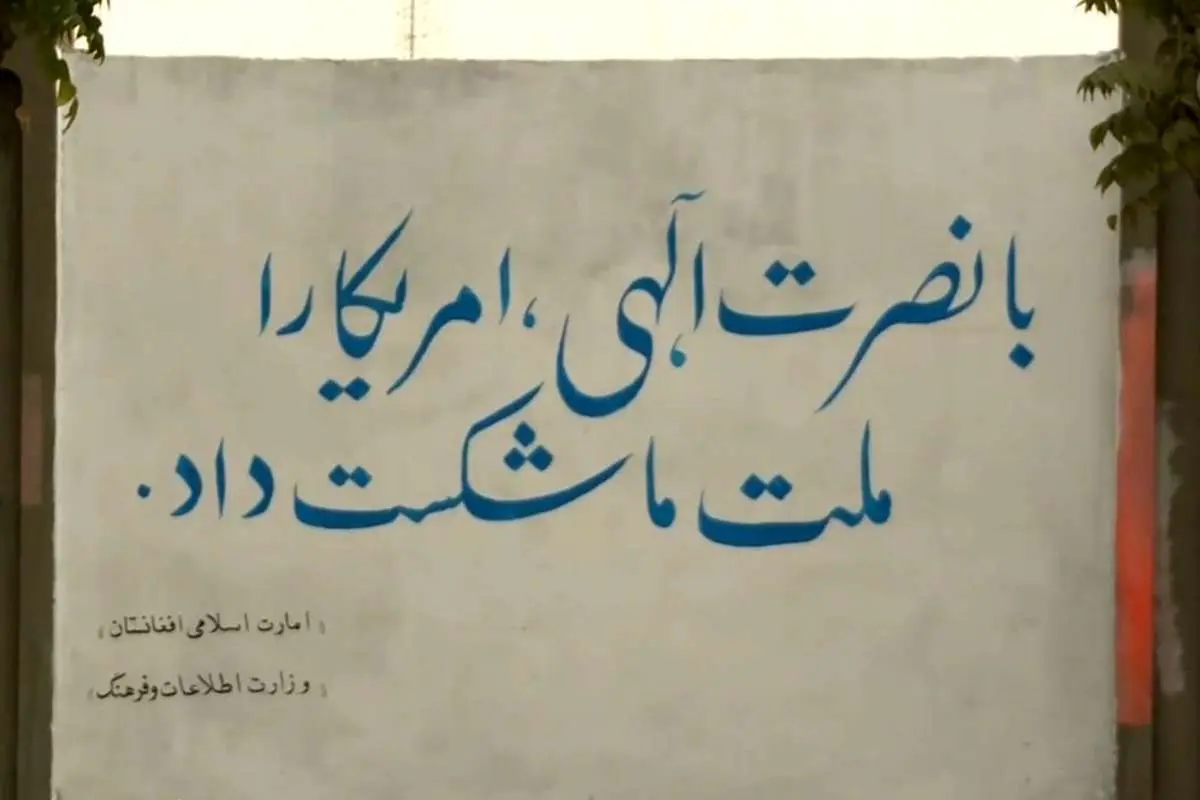 با نصرت الٓهی، امریکا را
ملت ما شکست داد.
«امارت اسلامی افغانستان»
«وزارت اطلاعات و فرهنگ»